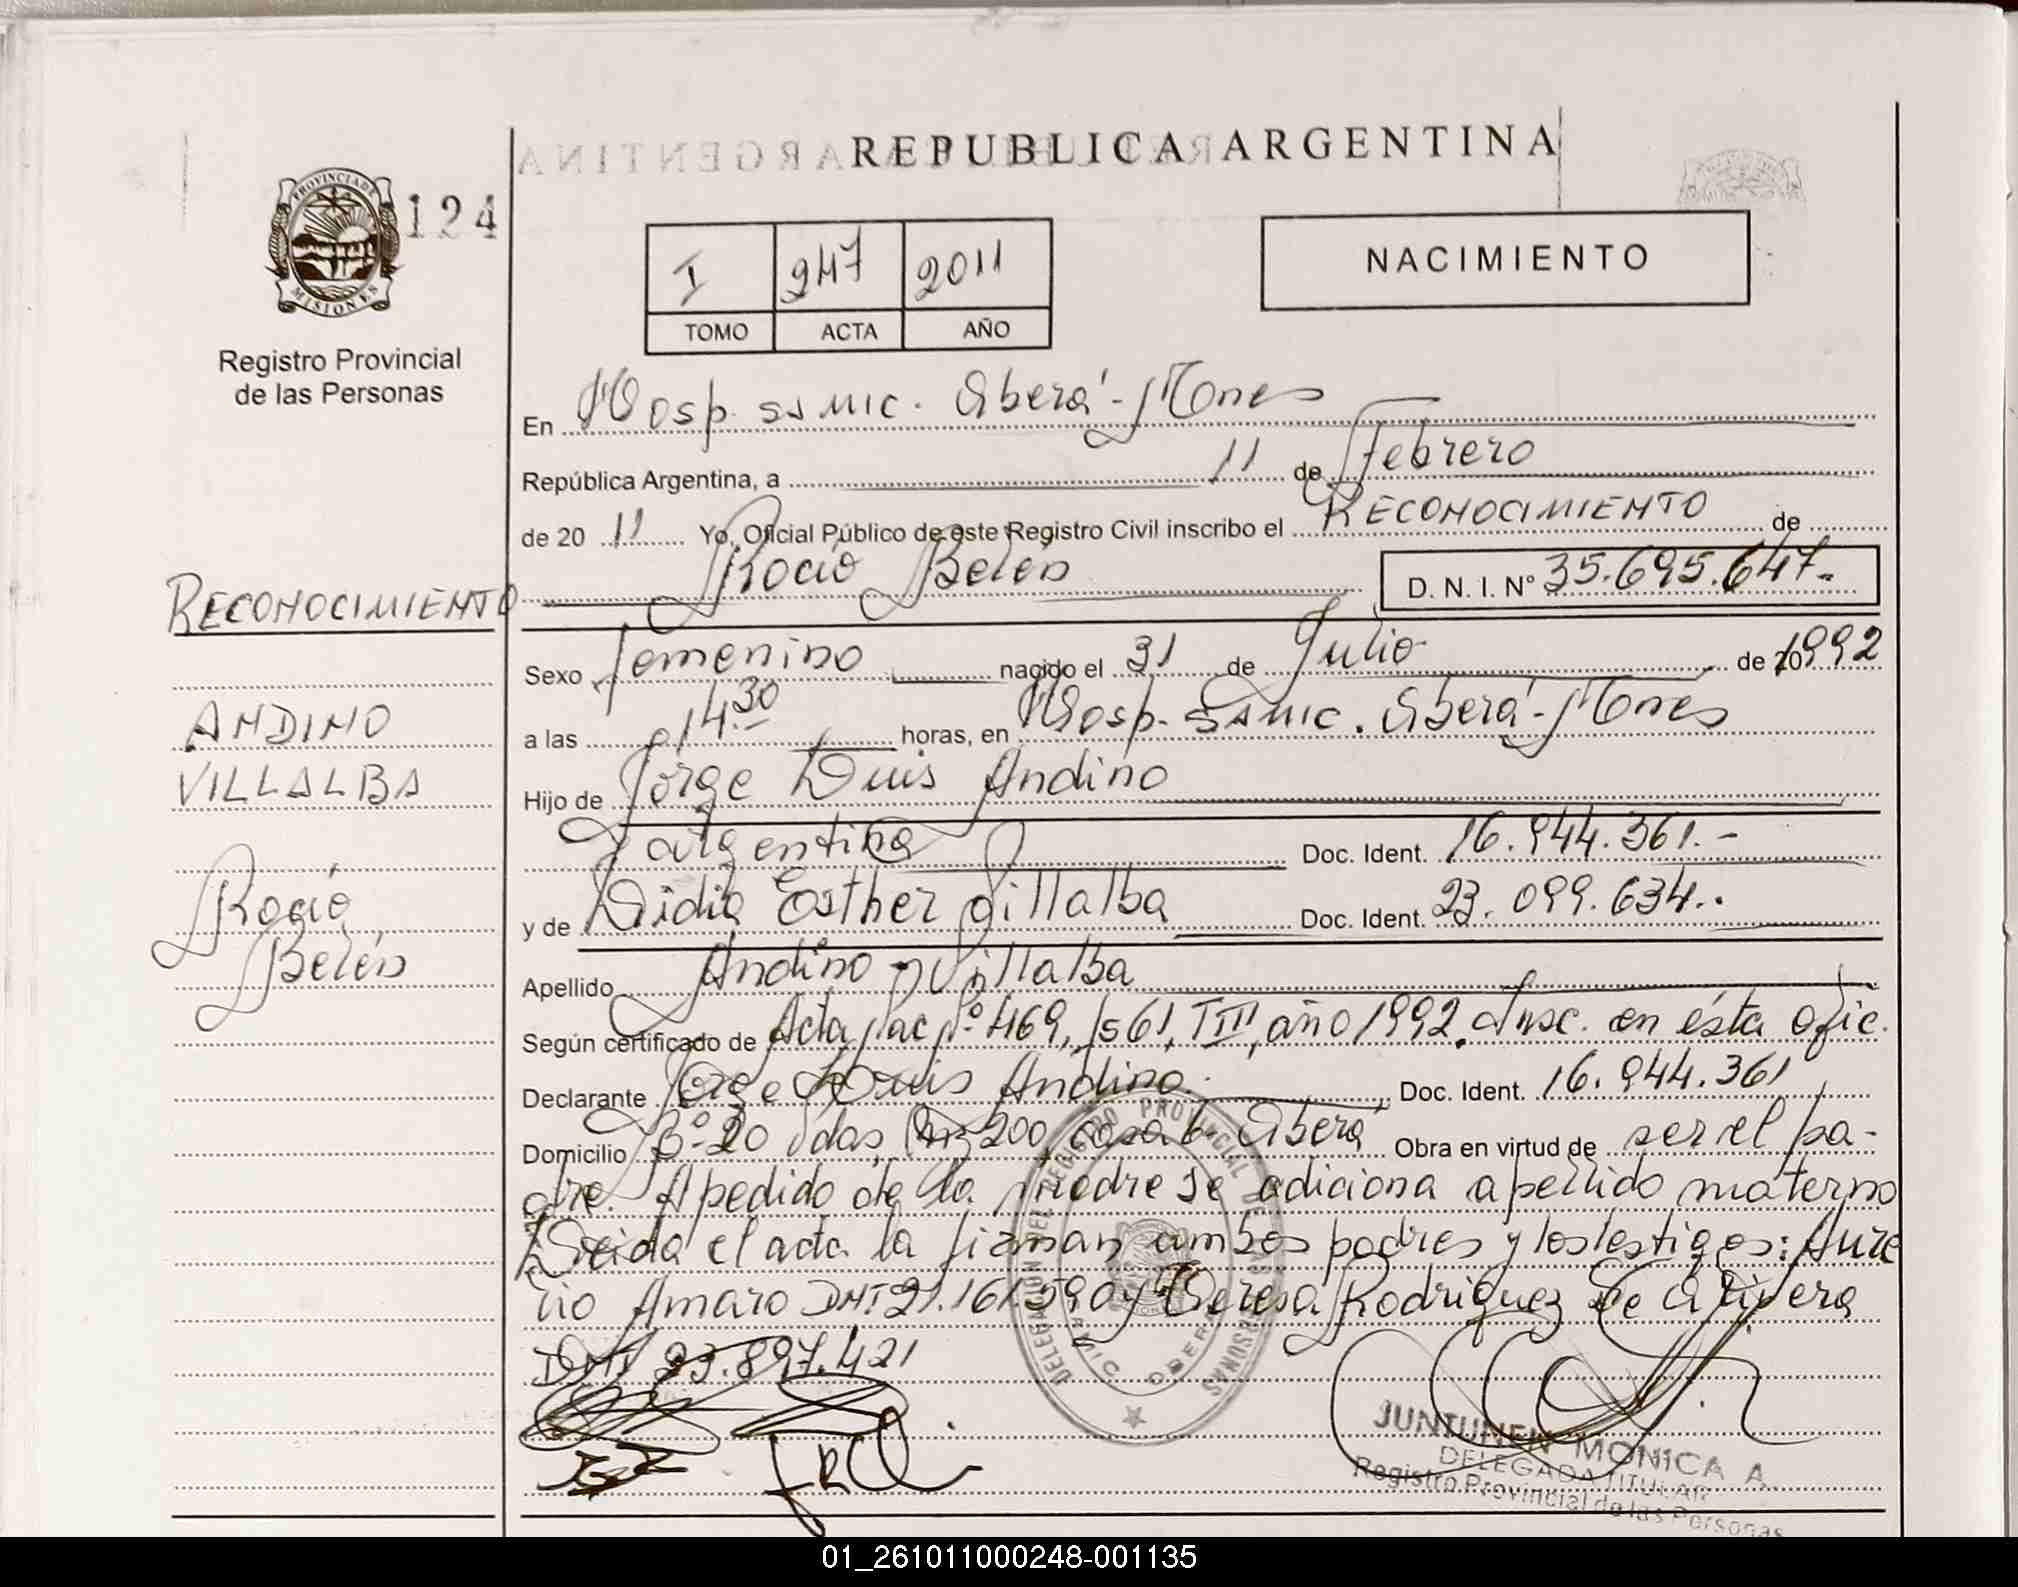 REPUBLICA ARGENTINA
PROVINCIA DE
MISIONES
124
Registro Provincial
de las Personas
I 247 2011
TOMO ACTA AÑO
NACIMIENTO
En Hosp. SSMIC. Oberá - Mnes
República Argentina, a 11 de Febrero
de 20 11 Yo, Oficial Público de este Registro Civil inscribo el RECONOCIMIENTO de
Rocío Belén D. N. I. Nº 35.695.647.-
RECONOCIMIENTO
Sexo Femenino nacido el 31 de Julio de 1992
a las 14.30 horas, en Hosp. SSMIC. Oberá - Mnes
ANDINO
VILLALBA
Rocío
Belén
Hijo de Jorge Luis Andino
argentina Doc. Ident. 16.944.361.-
y de Lidia Esther Villalba Doc. Ident. 23.099.634.-
Apellido Andino Villalba
Según certificado de Acta Nac Nº 469, Fs 61, T III, año 1992. Insc. en ésta Ofic.
Declarante Jorge Luis Andino. Doc. Ident. 16.944.361
Domicilio Bº 20 Vdas, Mz 200 casa 6 - Oberá Obra en virtud de ser el pa-
dre. A pedido de la madre se adiciona apellido materno
Leida el acta la firman ambos padres y los testigos: Aure
lio Amaro DNI 21.161.590 y Teresa Rodriguez De Olivera
DNI 23.897.421
DELEGACION DEL REGISTRO PROVINCIAL DE LAS PERSONAS
OBERA
JUNTUNEN MONICA A.
DELEGADA TITULAR
Registro Provincial de las Personas
01_261011000248-001135